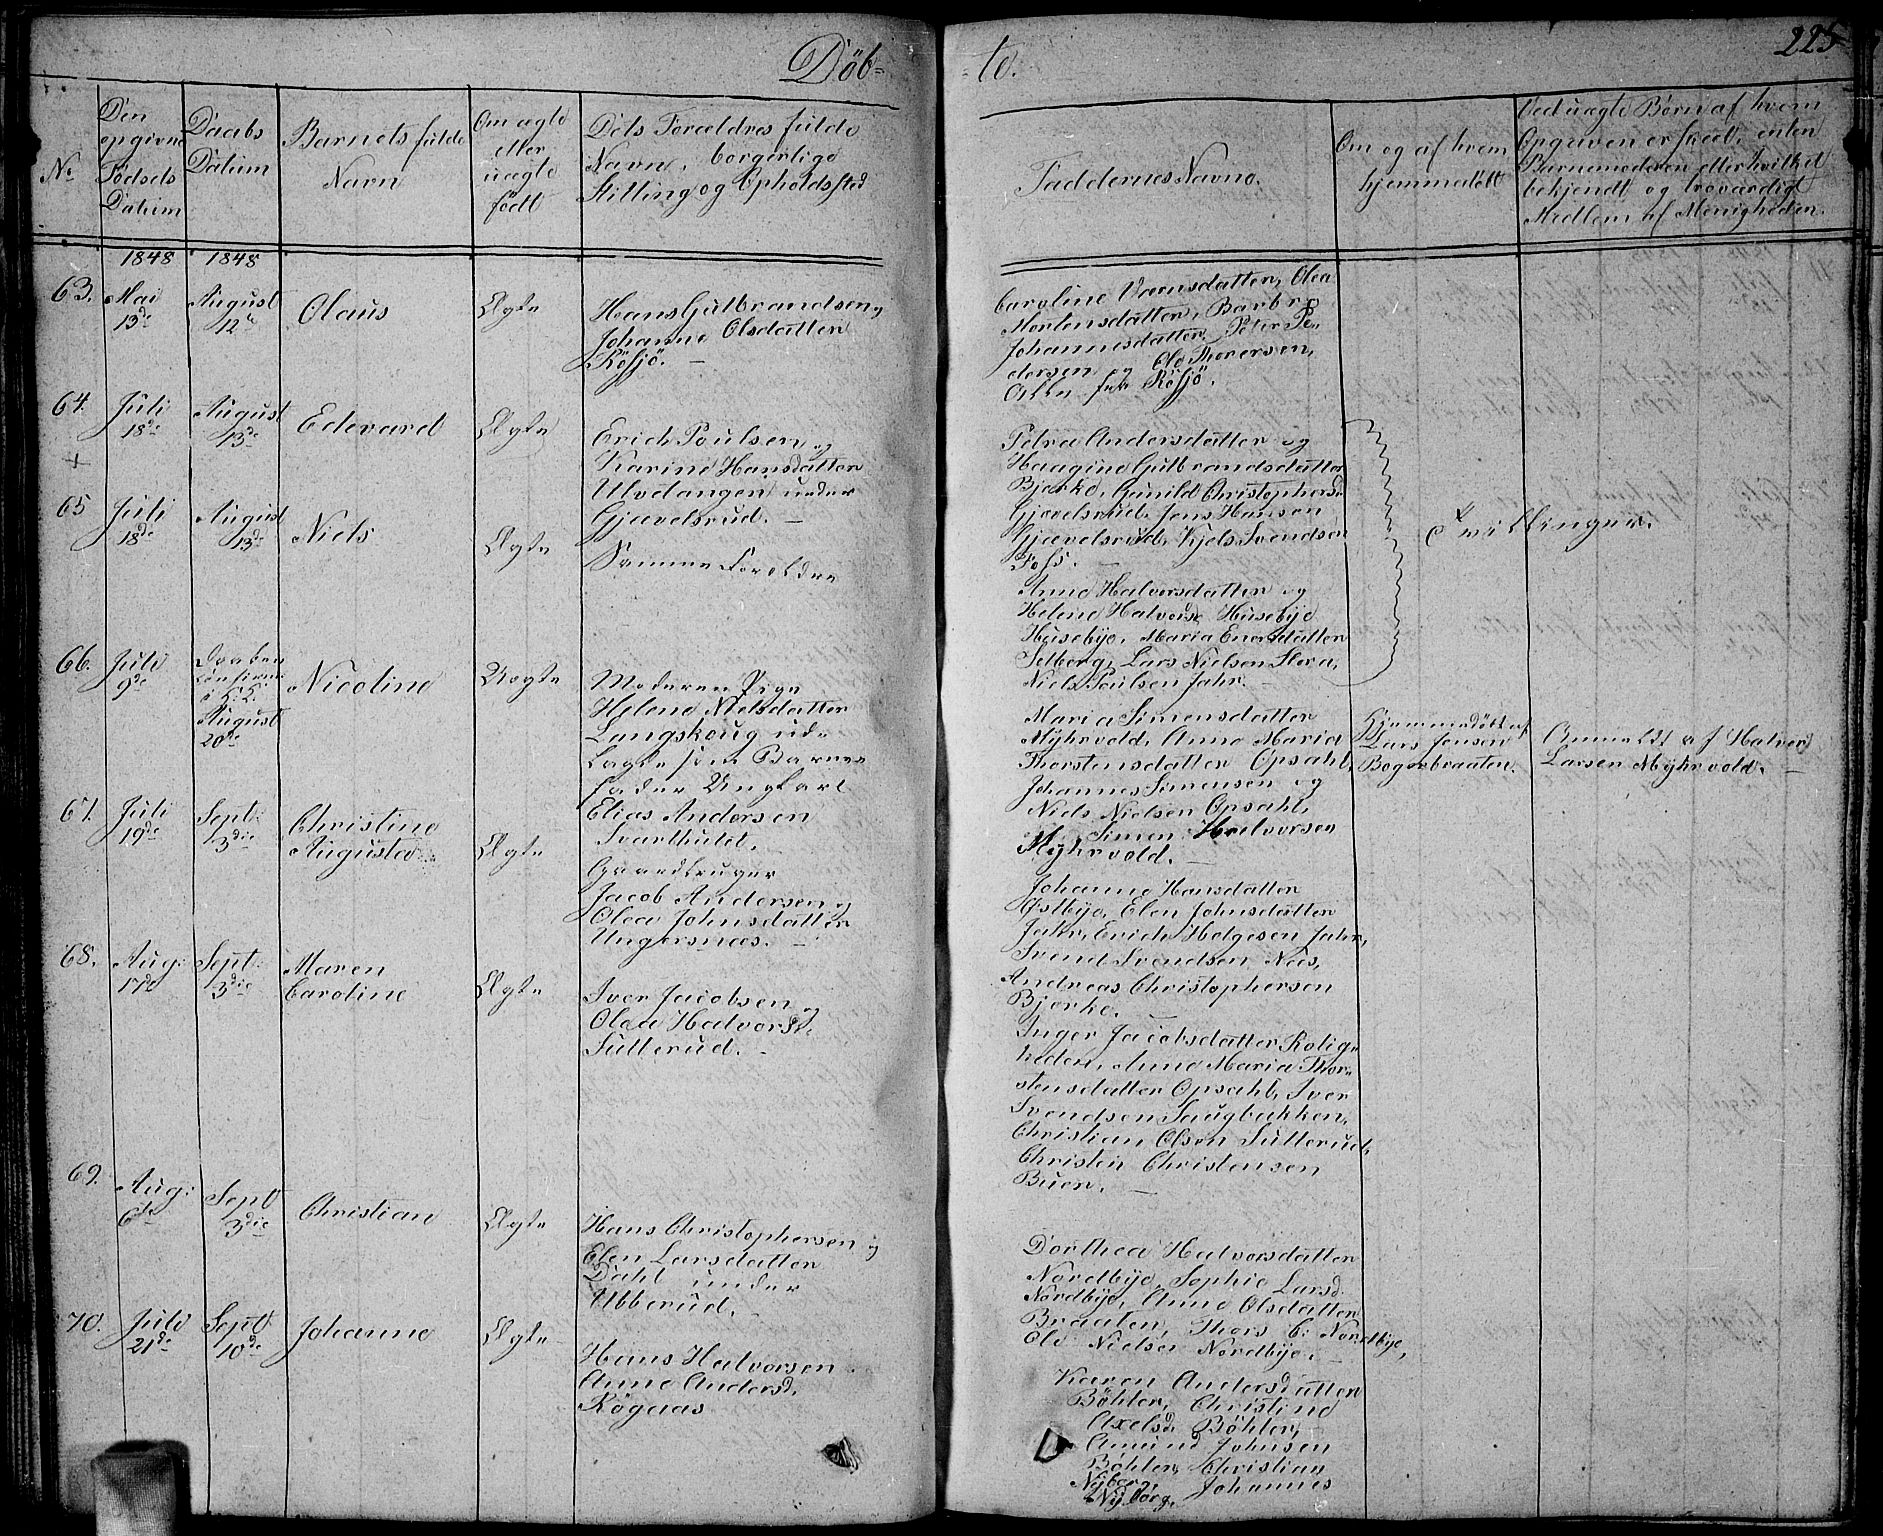 Döb=
No
Den
opgivne
Födsels
Datum
Daabs
Datum
Barnets fulde
Navn
Om ægte
eller
uægte
födt
Dets Forældres fulde
Navn, borgerlige
Stilling og Opholdssted
1848
1848
63.
Mai
13de
August
12te
Olaus
Ægte
Hans Gulbrandsen og
Johanne Olsdatter
Rösjö. —
64.
Juli
18de
August
13de
Edevard
Ægte
Erich Poulsen og
Karine Hansdatter
Ulvedangen under
Gjævelsrud. —
+
65
Juli
18de
August
13de
Niels
Ægte
Samme Foreldre
66.
Juli
9de
Daaben
August
20de
Nicoline
Uægte
Moderen Pige
Helene Nielsdatter
Langskoug ud-
lagde som Barne-
fader Ungkarl
Elias Andersen
Svarthuld.
67.
Juli
19de
Sept:
3die
Christine
Augusta
Ægte
Gaardbruger
Jacob Andersen og
Olea Johnsdatter
Ungersnæs. —
68.
Aug:
17de
Sept:
3die
Maren
Caroline
Ægte
Iver Jacobsen og
Olea Halvorsd.
Sutterud. —
69.
Aug:
6te
Sept
3die
Christian
Ægte
Hans Christophersen og
Elen Larsdatter
Dahl under
Ubberud.
70.
Juli
21de
Sept
10de
Johanne
Ægte
Hans Halvorsen
Anne Andersd.
Rögnaas
-te.
225
Faddernes Navne.
Om og af hvem
hjemmedöbt
Ved uægte Börn af hvem
Opgaven er skeet, enten
Barnemoderen eller hvilket
bekjendt og troværdigt
Medlem af Menigheden.
Caroline Hansdatter, Olea
Mortensdatter, Barbro
Johannesdatter, Peter Pe-
dersen og Ole Thoresen,
Alle fra Rösjö.
Petra Andersdatter og
Haagine Gulbrandsdatter
Bjerke, Gunild Christophersd.
Gjævelsrud, Jens Hansen
Gjævelsrud, Kjels Svendsen
Foss. —
Tvillinger.
Anne Halvorsdatter og
Helene Halvorsd. Husebye
Husebye, Maria Enersdatter
Selberg, Lars Nielsen Flora,
Niels Poulsen Jahr. —
Maria Simensdatter
Myhrvold, Anne Maria
Thorstensdatter Opsahl,
Johannes Simensen og
Niels Nielsen Opsahl,
Simen Halvorsen
Myhrvold. —
Hjemmedöbt af
Lars Jensen
Bogerbraaten.
Anmeldt af Halvor
Larsen Myhrvold. —
Johanne Hansdatter
Østbye, Elen Johnsdatter
Jahr, Erich Helgesen Jahr,
Svend Svendsen Næs,
Andreas Christophersen
Bjerke. —
Inger Jacobsdatter Rolig-
heden, Anne Maria Thor-
stensdatter Opsahl, Iver
Svendsen Saugbakken,
Christian Olsen Sutterud,
Christen Christensen
Buen. —
Dorthea Halvorsdatter
Nordbye, Sophie Larsd.
Nordbye, Anne Olsdatter
Braaten, Thors C: Nordbye,
Ole Nielsen Nordbye. —
Karen Andersdatter
Böhler, Christine
Axelsd. Böhler,
Amund Johnsen
Böhler, Christian
Nyborg, Johannes
Nyborg.